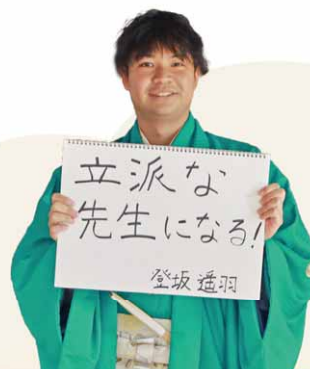 立派な
先生になる!
登坂遥羽